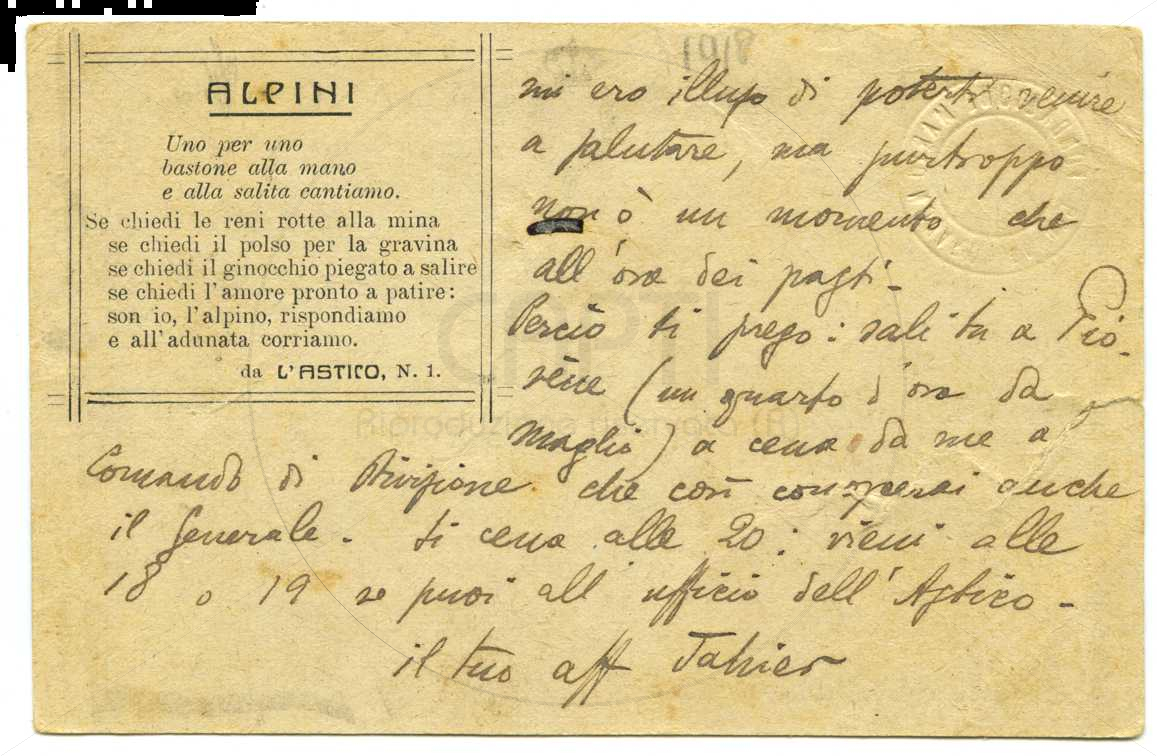 ALPINI
Uno per uno
bastone alla mano
e alla salita cantiamo.
Se chiedi le reni rotte alla mina
se chiedi il polso per la gravina
se chiedi il ginocchio piegato a salire
se chiedi l'amore pronto a patire:
son io, l'alpino, rispondiamo
e all'adunata corriamo.
da L'ASTICO, N. 1.
mi ero illuso di poterti venire
a salutare, ma purtroppo
non ò un momento che
all'ora dei pasti.
Perciò ti prego: sali tu a Pio-
vène (un quarto d'ora da
Maglio) a cena da me a
Comando di Divisione che così conoscerai anche
il Generale. Si cena alle 20: vieni alle
18 o 19 se puoi all'ufficio dell'Astico.
il tuo aff Jahier
CAPTI
Riproduzione